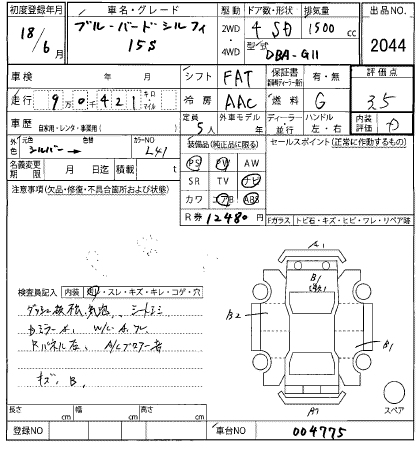 初度登録年月 車名・グレード 駆動 ドア数・形状 排気量 出品NO.
18/6月 ブルーバードシルフィ 15S 2WD・4WD 4 SD 1500 cc 2044
型式 DBA-G11
車検 年 月 シフト FAT 保証書 有・無 評価点
走行 9万0千421 キロ マイル 冷房 AAC 燃料 G 3.5
車歴 自家用・レンタ・事業用( ) 定員 5人 外車モデル 年 ディーラー・並行 ハンドル 左・右 内装評価
外色 元色 シルバー 色替 カラーNO L41 装備品(純正品に限る) セールスポイント(正常に作動するもの)
名義変更期限 月 日迄 積載 t PS PW AW
注意事項(欠品・修復・不具合箇所および状態) SR TV ナビ
カワ エアB ABS
R券 12480円 Fガラス トビ石・キズ・ヒビ・ワレ・リペア跡
A1
B1
B2
B1
検査員記入 内装 ・スレ・キズ・キレ・コゲ・穴
キズ、B、
A7
スペア
長さ cm 幅 cm 高さ cm
登録NO 車台NO 004775